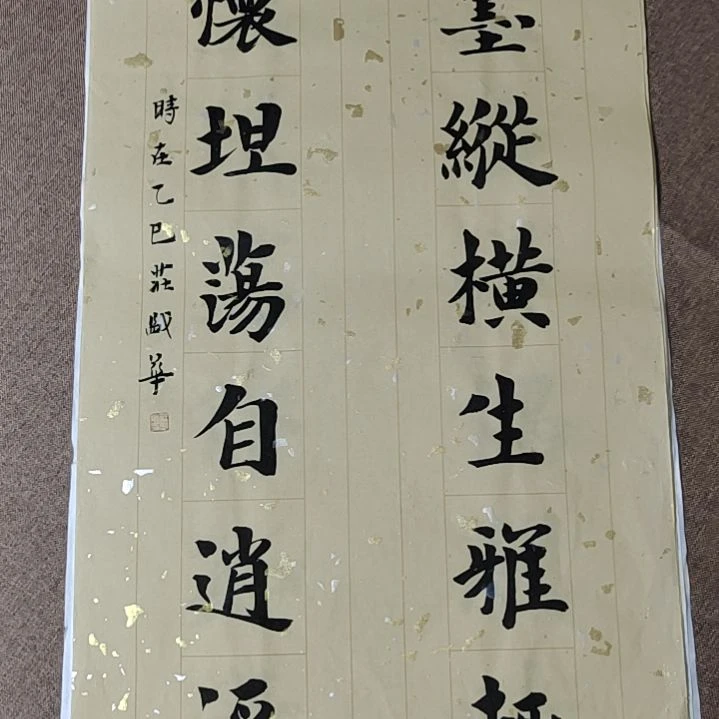 墨縱橫生雅
懷坦蕩自逍
時在乙巳莊華